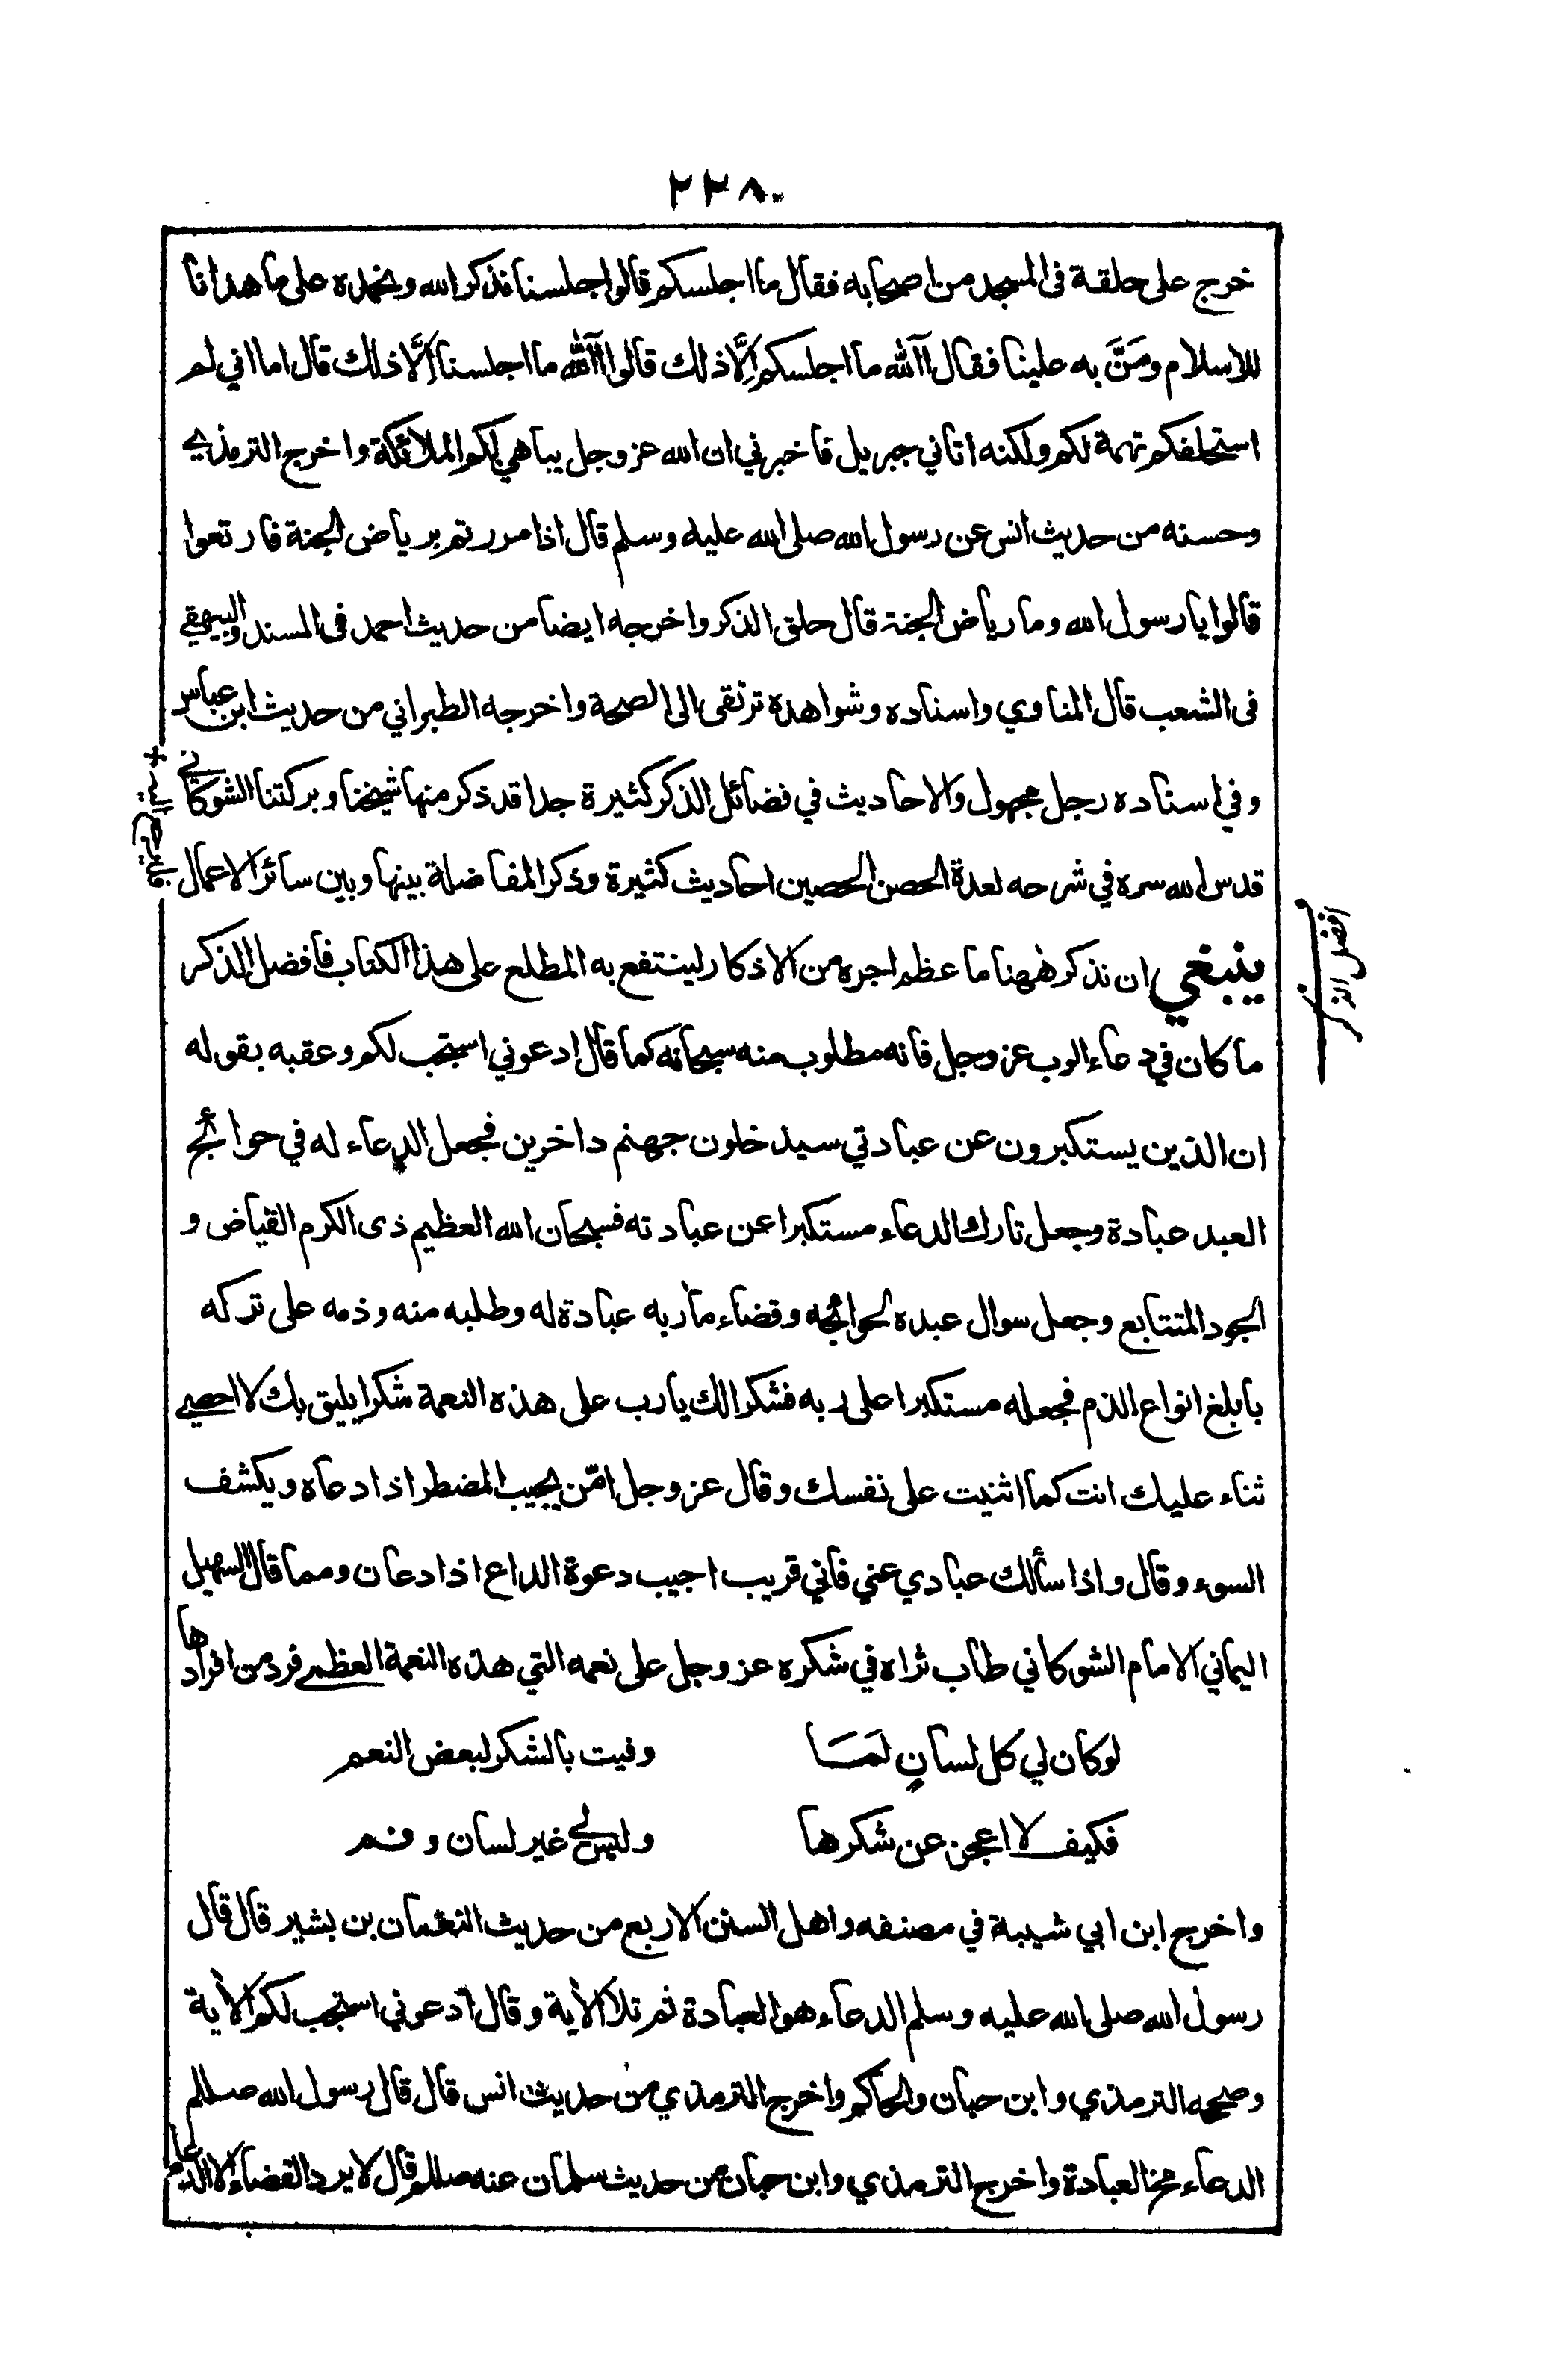 ٢٢٨
خرج على حلقة فى المسجد من اصحابه فقال ما اجلسكم قالوا جلسنا نذكر الله ونحمده على ما هدانا
للاسلام ومَنَّ به علينا فقال آلله ما اجلسكم اِلَّا ذلك قالوا آلله ما اجلسنا اِلَّا ذلك قال اما اني لم
استحلفكم تهمة لكم ولكنه اتاني جبريل فاخبرني ان الله عز وجل يباهي بكم الملائكة واخرج الترمذي
وحسنه من حديث انس عن رسول الله صلى الله عليه وسلم قال اذا مررتم برياض الجنة فارتعوا
قالوا يا رسول الله وما رياض الجنة قال حلق الذكر واخرجه ايضا من حديث احمد فى المسند والبيهقي
فى الشعب قال المناوي واسناده وشواهده ترتقى الى الصحة واخرجه الطبراني من حديث ابن عباس
وفي اسناده رجل مجهول والاحاديث في فضائل الذكر كثيرة جدا قد ذكر منها شيخنا وبركتنا الشوكاني
قدس الله سره في شرحه لعدة الحصن الحصين احاديث كثيرة وذكر المفاضلة بينها وبين سائر الاعمال
فليرجع اليه +
ينبغي ان نذكر ههنا ما عظم اجره من الاذكار لينتفع به المطلع على هذا الكتاب فافضل الذكر
افضل الذكر
ما كان في دعاء الرب عز وجل فانه مطلوب منه سبحانه كما قال ادعوني استجب لكم وعقبه بقوله
ان الذين يستكبرون عن عبادتي سيدخلون جهنم داخرين فجعل الدعاء له في حوائج
العبد عبادة وجعل تارك الدعاء مستكبرا عن عبادته فسبحان الله العظيم ذى الكرم الفياض و
الجود المتتابع وجعل سوال عبده لحوائجه وقضاء مأربه عبادة له وطلبه منه وذمه على تركه
بابلغ انواع الذم فجعله مستكبرا على ربه فشكرا لك يا رب على هذه النعمة شكرا يليق بك لا احصي
ثناء عليك انت كما اثنيت على نفسك وقال عز وجل امّن يجيب المضطر اذا دعاه ويكشف
السوء وقال واذا سألك عبادي عني فاني قريب اجيب دعوة الداع اذا دعان ومما قال السهيل
اليماني الامام الشوكاني طاب ثراه في شكره عز وجل على نعمه التي هذه النعمة العظمى فرد من افرادها
لو كان لي كل لسانٍ لَمَا وفيت بالشكر لبعض النعم
فكيف لا اعجز عن شكرها وليس لي غير لسان وفم
واخرج ابن ابي شيبة في مصنفه واهل السنن الاربع من حديث النعمان بن بشير قال قال
رسول الله صلى الله عليه وسلم الدعاء هو العبادة ثم تلا الأية وقال ادعوني استجب لكم الأية
وصححه الترمذي وابن حبان والحاكم واخرج الترمذي من حديث انس قال قال رسول الله صللم
الدعاء مخ العبادة واخرج الترمذي وابن حبان من حديث سلمان عنه صللم قال لا يرد القضاء الا الدعاء